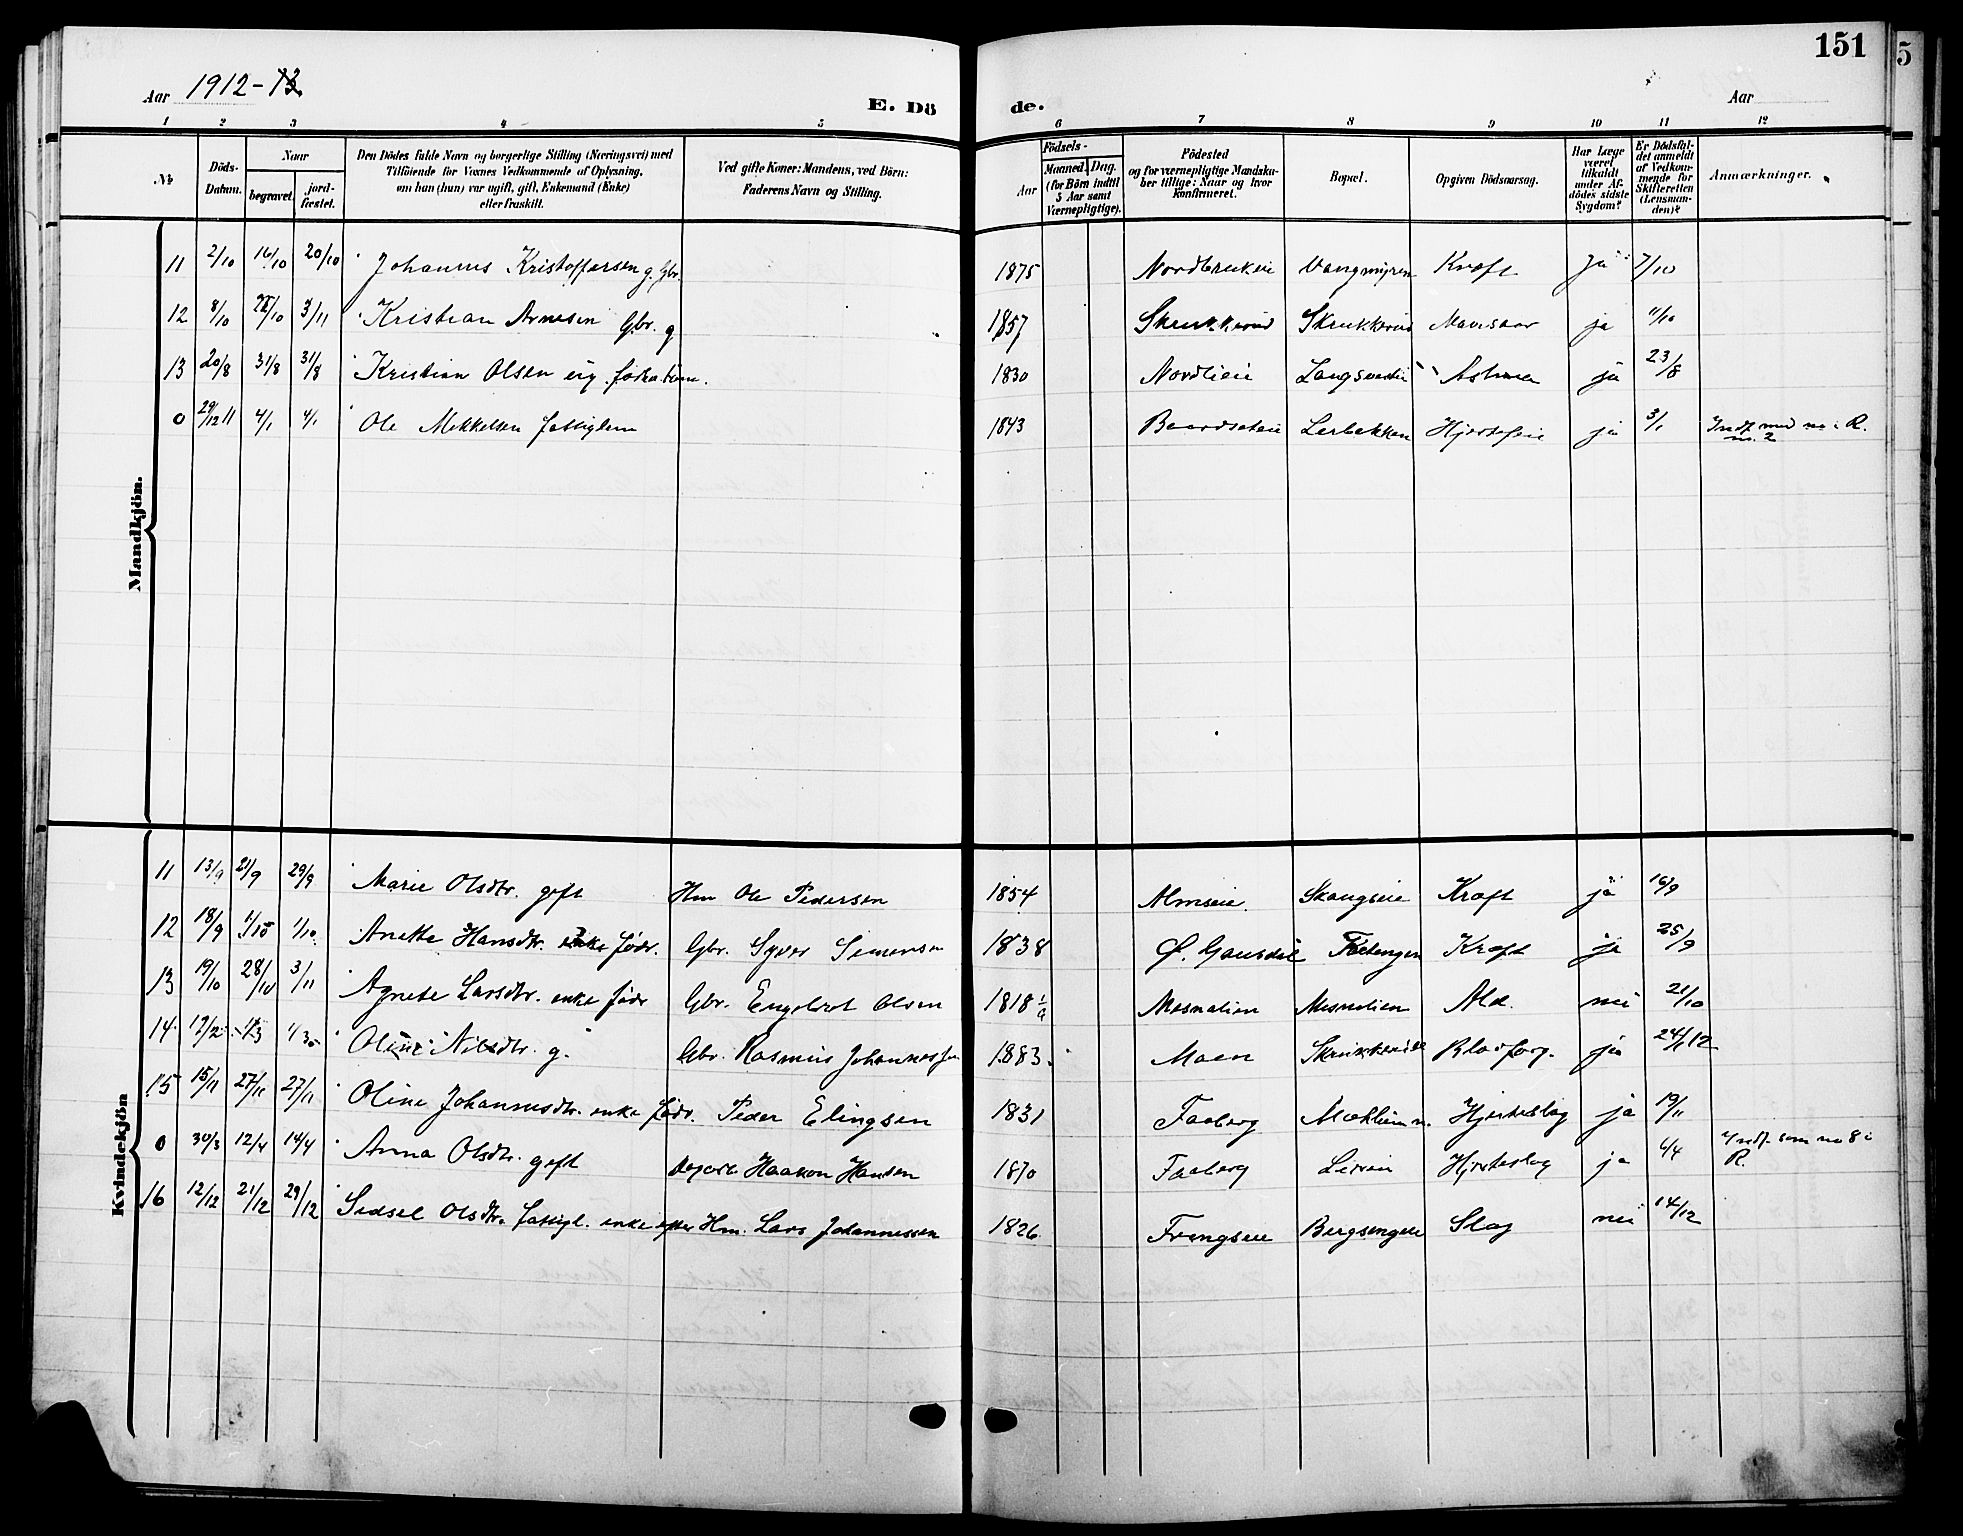 151
Aar 1912-13
E. Döde.
Aar
1 2 3 4 5 6 7 8 9 10 11 12
№
Döds-Datum.
Naar
begravet.
jord-fæstet.
Den Dödes fulde Navn og borgerlige Stilling (Næringsvei) med
Tilföiende for Voxnes Vedkommende af Oplysning,
om han (hun) var ugift, gift, Enkemand (Enke)
eller fraskilt.
Ved gifte Koner: Mandens, ved Börn:
Faderens Navn og Stilling.
Födsels-
Aar
Maaned. Dag.
(for Börn indtil
5 Aar samt
Værnepligtige).
Födested
og for værnepligtige Mandska-
ber tillige: Naar og hvor
konfirmeret.
Bopæl.
Opgiven Dödsaarsag.
Har Læge
været
tilkaldt
under Af-
dödes sidste
Sygdom?
Er Dödsfal-
det anmeldt
af Vedkom-
mende for
Skifteretten
(Lensman-
den)?
Anmærkninger.
Mandkjön.
11 2/10 16/10 20/10 Johannes Kristoffersen g. Gbr. 1875 Nordbrukeie Vangmyren Kræft Ja 7/10
12 8/10 3/11 Kristian Arnesen Gbr. g 1857 Skrukkerud Skrukkerud ja 11/10
13 20/8 31/8 31/8 Kristian Olsen 1830 Nordlieie Astma ja 23/8
0 29/12 11 4/1 4/1 Ole Mikkelsen fattiglem 1843 Baardseteie Lerbekken Hjertefeil ja 3/1 Indf. med no i R. no. 2
Kvindekjön
11 13/9 21/9 29/9 Marie Olsdtr. gift Hm Ole Pedersen 1854 Almseie. Skougseie Kræft ja 16/9
12 18/9 1/10 1/10. Anette Hansdtr. enke föder. Gbr. Syver Simensen 1838 Ö. Gausdal Kræft ja 25/9
13 19/10 28/10 3/11 Agnete Larsdtr. enke föder Gbr. Engebret Olsen 1818 1/9 Mesnalien Mesnalien Ald. nei 21/10
14 17/2 1/3 Oline Nilsdtr. g. Gbr. Rasmus Johannessen 1883. Moen Blodforg. ja 12
15 15/11 27/11 27/11 Oline Johannesdtr. enke föder. Peder Elingsen 1831 Faaberg Hjerteslag ja 19/11
0 30/3 12/4 14/4 Anna Olsdtr. gift Haakon Hansen 1870 Faaberg Hjerteslag ja 4/4 Indf. som no 8 i R.
16 12/12 21/12 29/12 Sidsel Olsdtr. fattigl. enke efter Hm. Lars Johannessen 1826 Frengseie Bergsengeie Slag nei 14/12